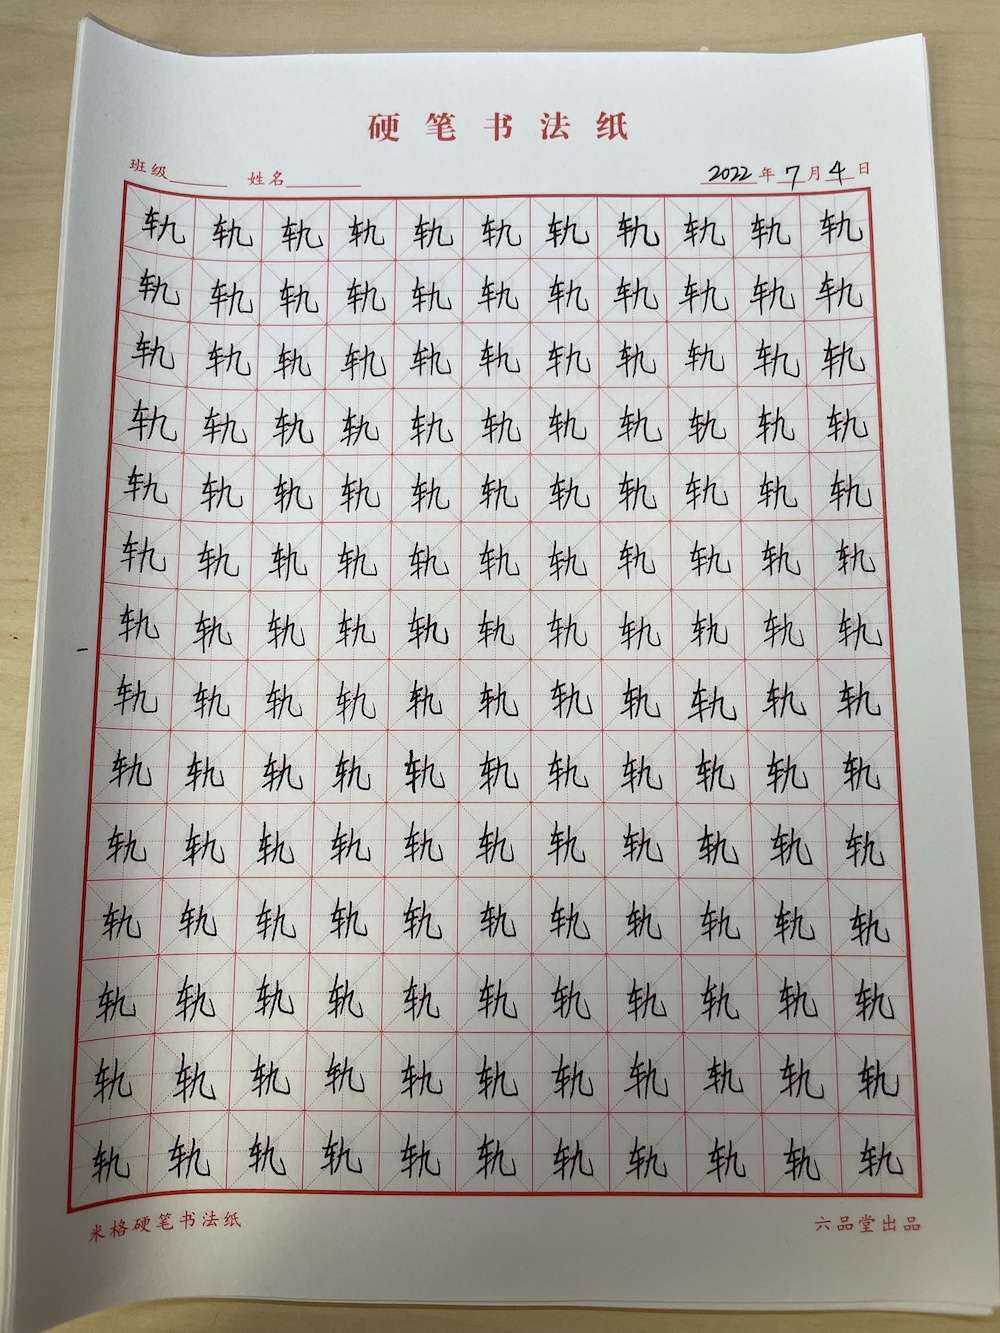 硬笔书法纸
班级 姓名 2022年7月4日
轨轨轨轨轨轨轨轨轨轨轨
轨轨轨轨轨轨轨轨轨轨轨
轨轨轨轨轨轨轨轨轨轨轨
轨轨轨轨轨轨轨轨轨轨轨
轨轨轨轨轨轨轨轨轨轨轨
轨轨轨轨轨轨轨轨轨轨轨
轨轨轨轨轨轨轨轨轨轨轨
轨轨轨轨轨轨轨轨轨轨轨
轨轨轨轨轨轨轨轨轨轨轨
轨轨轨轨轨轨轨轨轨轨轨
轨轨轨轨轨轨轨轨轨轨轨
轨轨轨轨轨轨轨轨轨轨轨
轨轨轨轨轨轨轨轨轨轨轨
轨轨轨轨轨轨轨轨轨轨轨
米格硬笔书法纸 六品堂出品